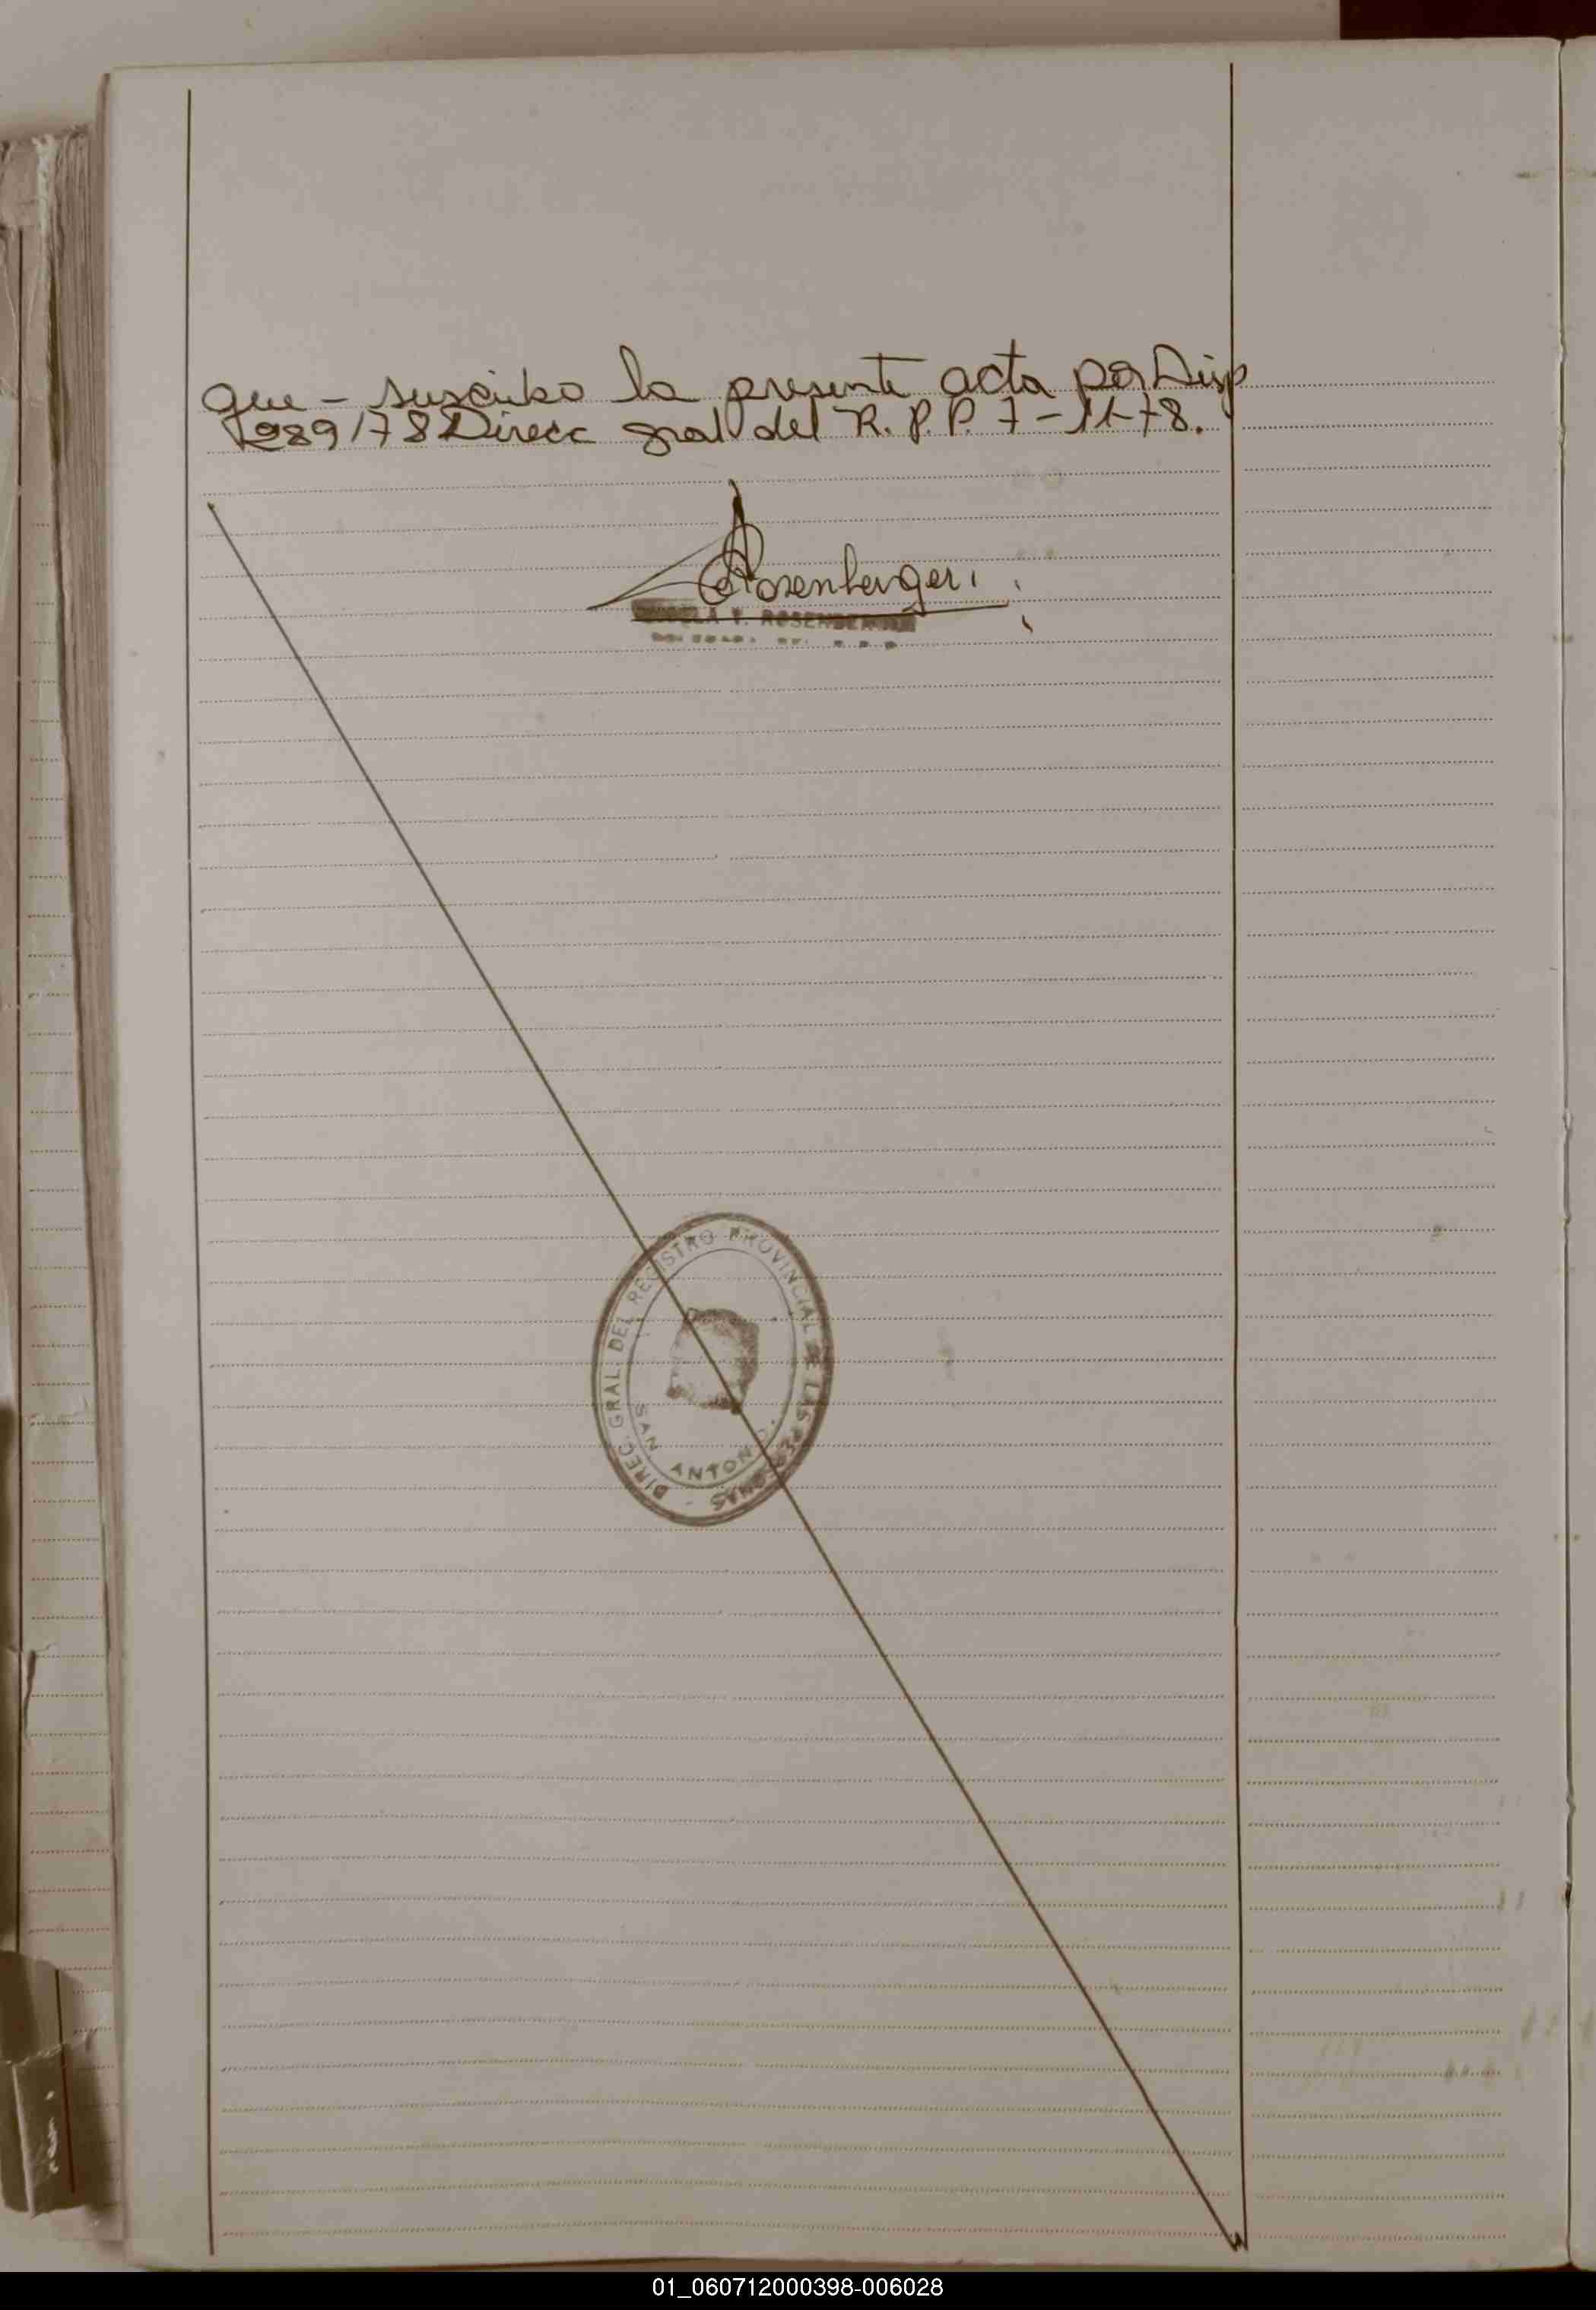 que - suscribo la presente acta por Disp
989/78 Direcc gral del R. P. P. 7-11-78.
Rosenberger
V. ROSENBERGER
DIREC. GRAL DEL REGISTRO PROVINCIAL DE LAS PERSONAS -
SAN ANTONIO
01_060712000398-006028